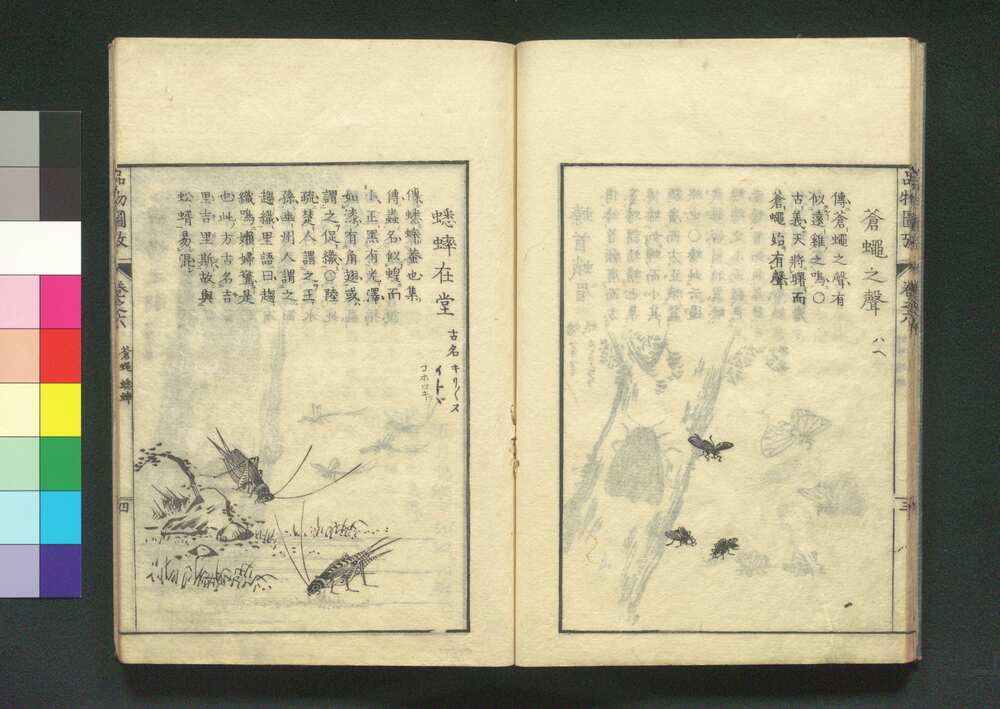 蒼蠅之聲
ハヘ
傳蒼蠅之聲有
似遠雞之鳴〇
古義天將曙而
蒼蠅始有聲
品物圖攷
卷之六
三
蟋蟀在堂
古名キリ〱ス
イトヾ
コホロキ
傳蟋蟀蛬也集
傳蟲名似蝗而
小正黑有光澤
如漆有角翅或
謂之促織〇陸
疏楚人謂之王
孫幽州人謂之
趨織里語曰趨
織鳴嬾婦驚是
也此方古名吉
里吉里斯故與
蚣蝑易混
品物圖攷
卷之六
蒼蠅 蟋蟀
四